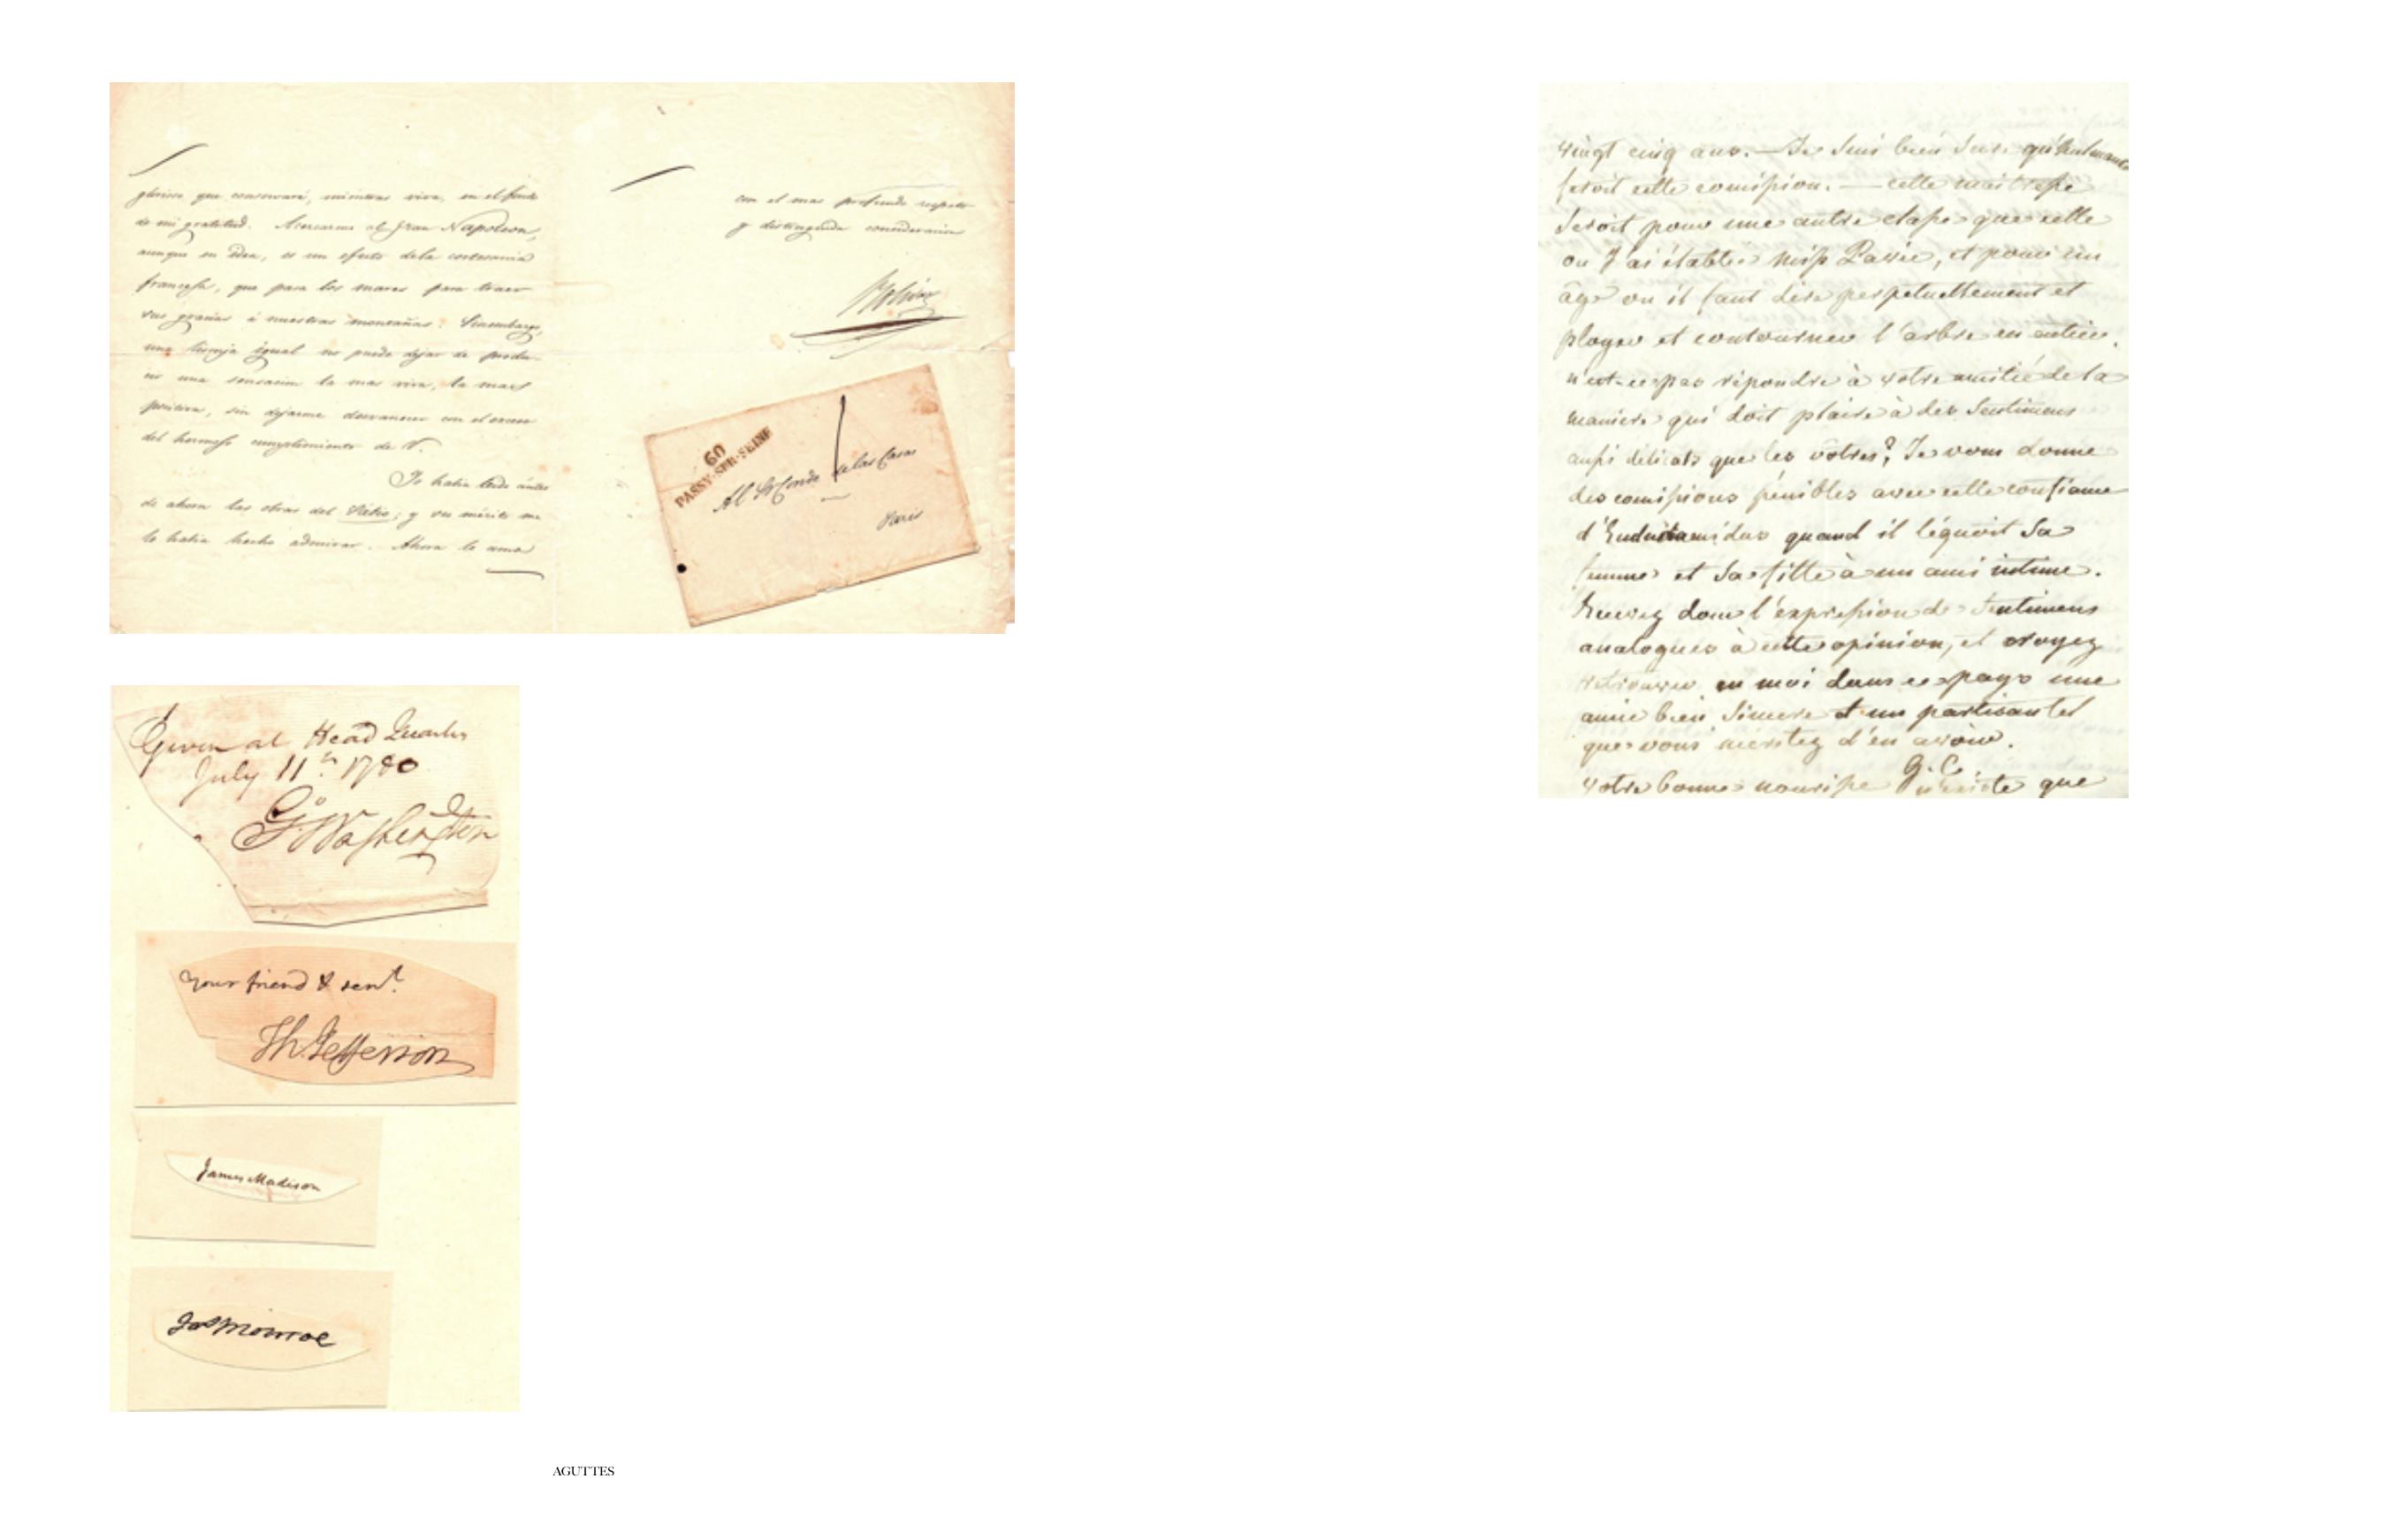 gloriosa que conservaré, mientras viva, en el fondo
de mi gratitud. Acercarme al Gran Napoleon,
aunque en idea, es un efecto de la cortesania
francesa, que pasa los mares para traer
sus gracias á nuestras montañas. Sinembargo,
una lisonja igual no puede dejar de produ-
cir una sensacion la mas viva, la mas
positiva, sin dejarme desvanecer con el exceso
del hermoso cumplimiento de V.
Yo habia leido ántes
de ahora las obras del Sabio; y su mérito me
lo habia hecho admirar. Ahora lo amo
con el mas profundo respeto
y distinguida consideracion
Bolivar
60
PASSY-SUR-SEINE
Al Sr Conde de las Casas
Paris
Given at Head Quarters
July 11th 1780
Go Washington
Your friend & servt
Th: Jefferson
James Madison
Jas Monroe
AGUTTES
vingt cinq ans. — Je suis bien sure
feroit cette comission. — cette maitresse
seroit pour une autre classe que celle
ou J'ai établie Miss Parvie, et pour un
âge ou il faut dire perpetuellement et
ployer et contourner l'arbre en entier.
n'est-ce pas répondre à votre amitié de la
maniere qui doit plaire à des Sentimens
aussi délicats que les vôtres? Je vous donne
des comissions pénibles avec cette confiance
d'Eudamidas quand il léguoit Sa
femme et Sa fille à un ami intime.
Recevez donc l'expression de Sentimens
analogues à cette opinion, et croyez
retrouver en moi dans ce pays une
amie bien Sincere et un partisan tel
que vous méritez d'en avoir.
G. C.
votre bonne nourisse n'existe que